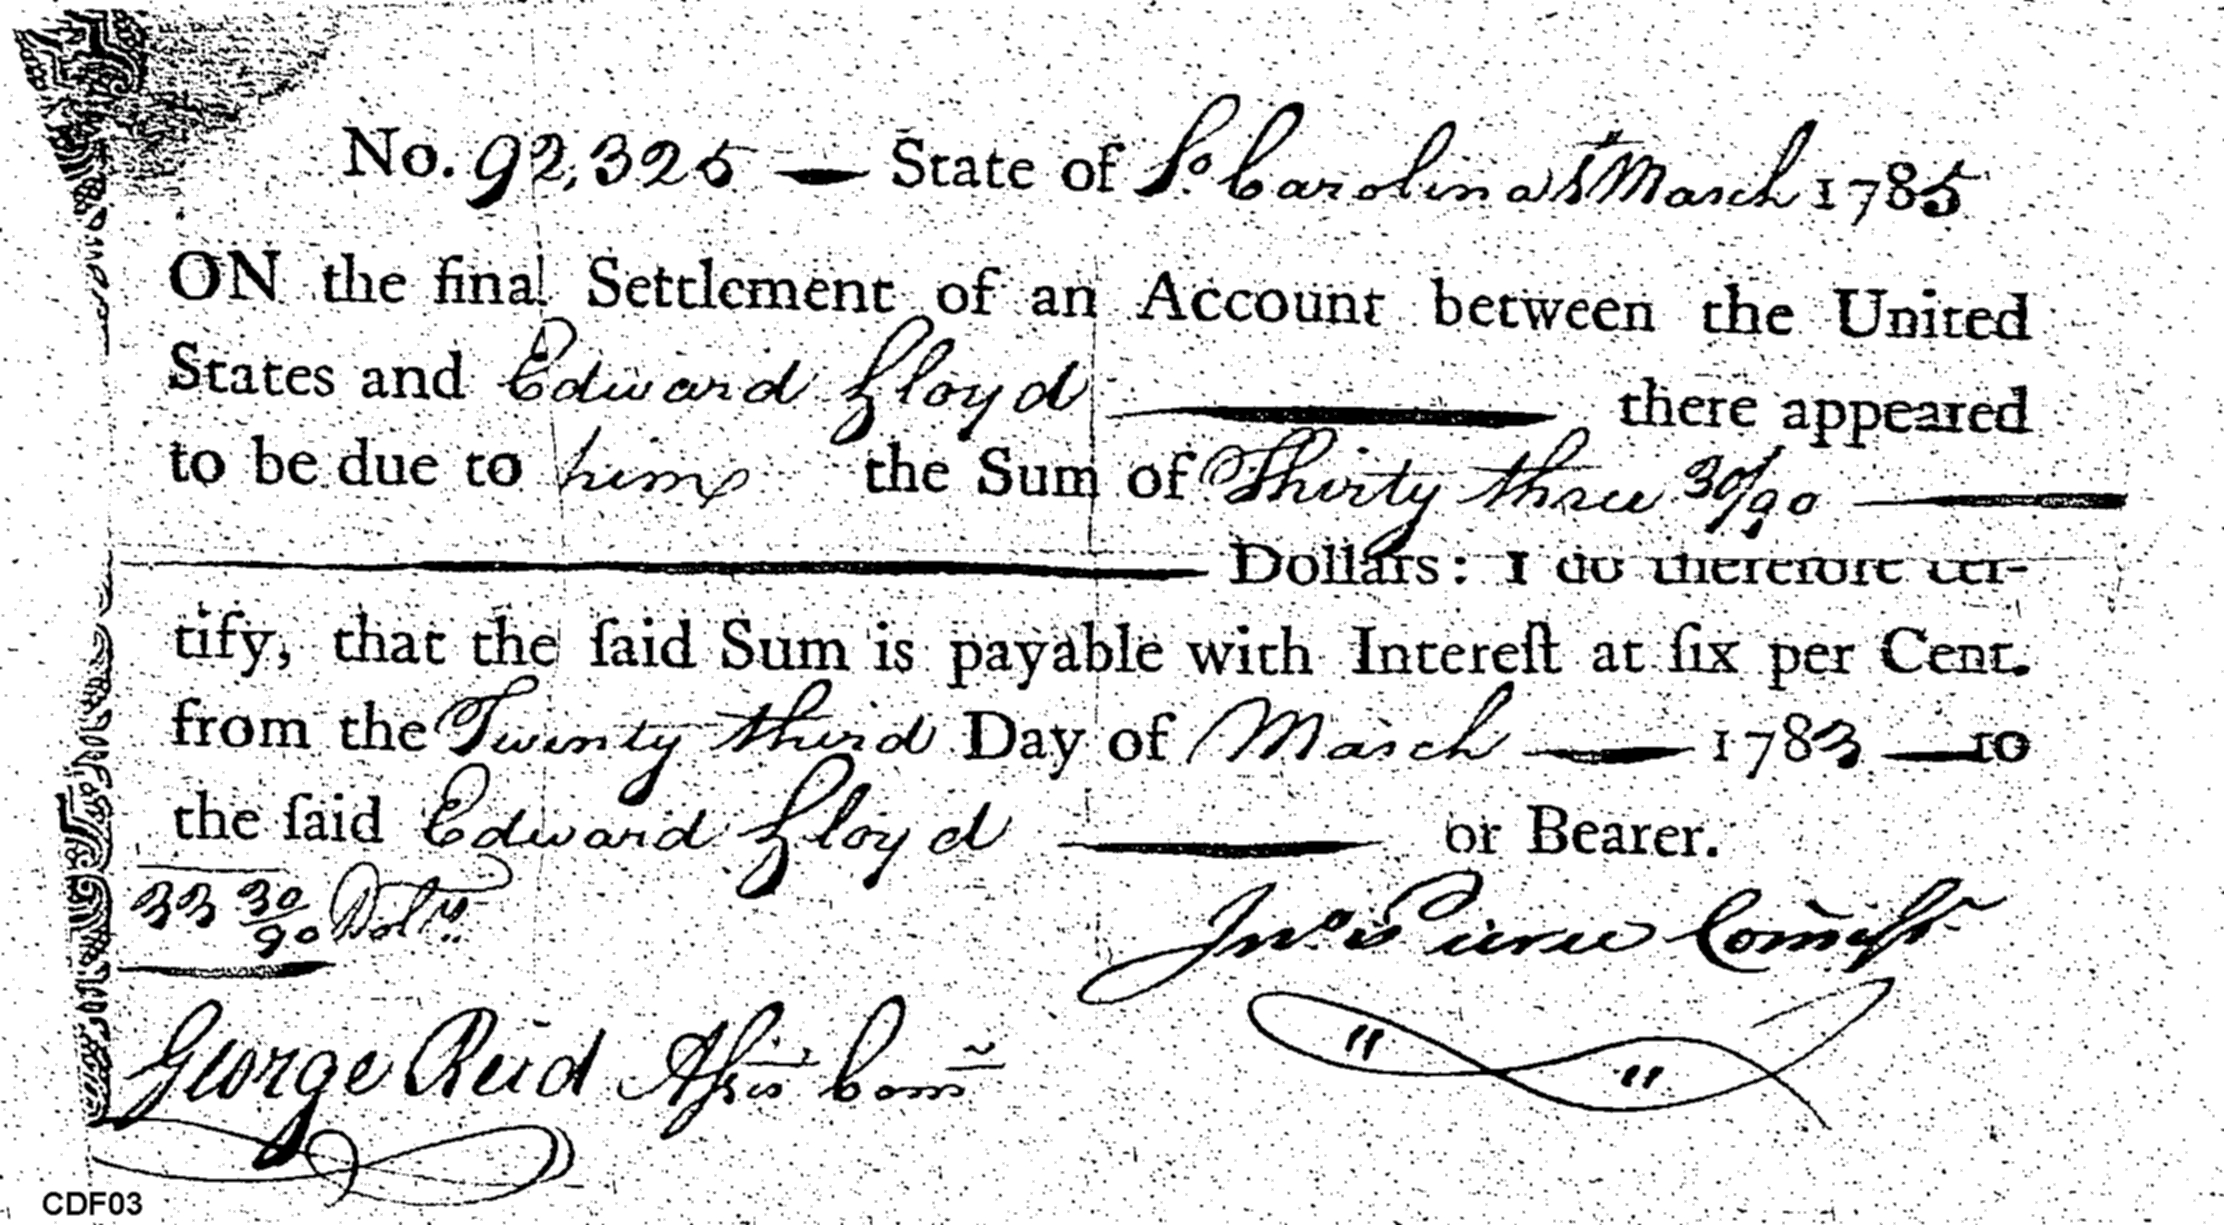 No. 92,325 — State of So. Carolina 1st March 1785
ON the final Settlement of an Account between the United
States and Edward Lloyd — there appeared
to be due to him the Sum of Thirty three 30/90 —
— Dollars: I do therefore cer-
tify, that the ſaid Sum is payable with Intereſt at ſix per Cent.
from the Twenty third Day of March — 1783 — to
the ſaid Edward Lloyd — or Bearer.
33 30/90 Dolrs.
Jno. Pierce Commissr.
George Reid Assis. Com
CDF03